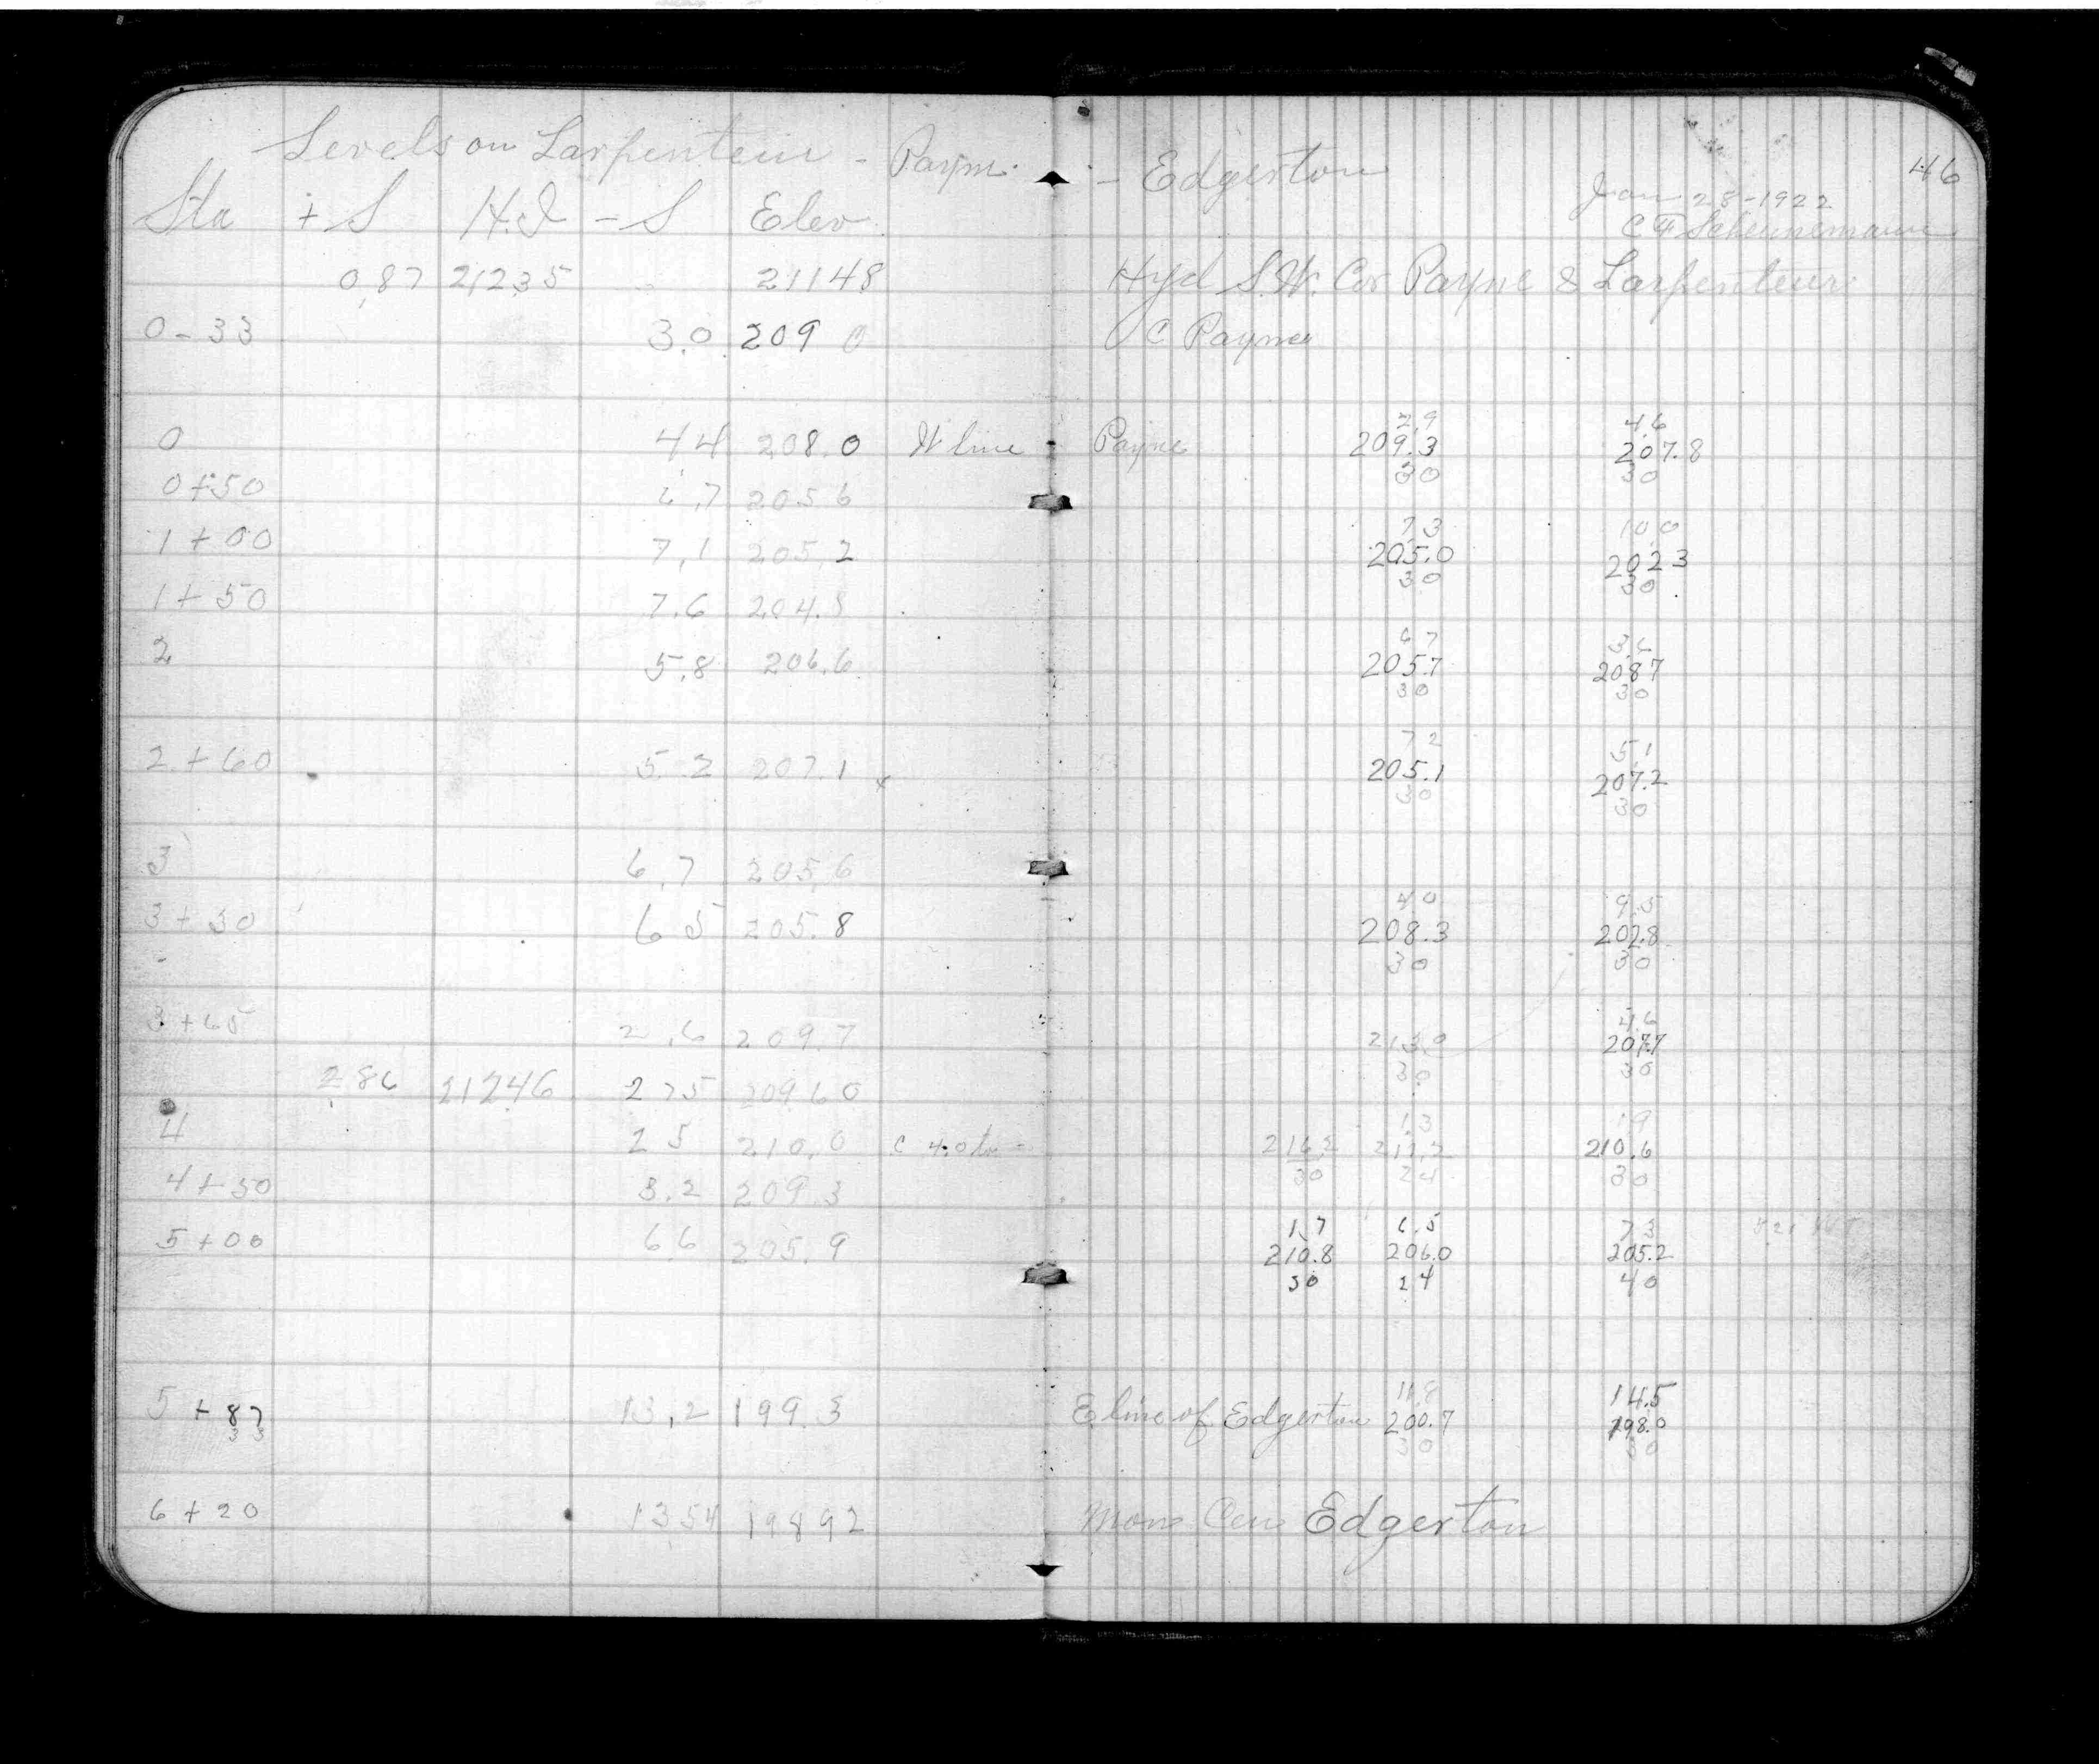 Levels on Larpenteur - Payne - Edgerton
46
Jan 28-1922
Sta + S H.I - S Elev
C F Scheunemann
0.87 212.35 211.48 Hyd S.W. Cor Payne & Larpenteur
0-33 3.0 209 0 C Payne
2.9 4.6
0 4.4 208.0 W line Payne 209.3 207.8
30 30
0+50 6.7 205.6
7.3 10.0
1+00 7.1 205.2 205.0 202.3
30 30
1+50 7.6 204.8
6.7 3.6
2 5.8 206.6 205.7 208.7
30 30
7.2 5.1
2+60 5.2 207.1 x 205.1 207.2
30 30
3 6.7 205.6
4.0 9.5
3+30 6.5 205.8 208.3 202.8
30 30
4.6
3+65 2.6 209.7 213.0 207.7
30 30
2.86 212.46 2.75 209.60
1.3 1.9
4 2.5 210.0 216.2 211.2 210.6
30 24 30
4+50 3.2 209.3
1.7 6.5 7.3
5+00 6.6 205.9 210.8 206.0 205.2
30 24 40
11.8 14.5
5+87 13.2 199.3 E line of Edgerton 200.7 198.0
33 30 30
6+20 13.54 198.92 Mon Cen Edgerton